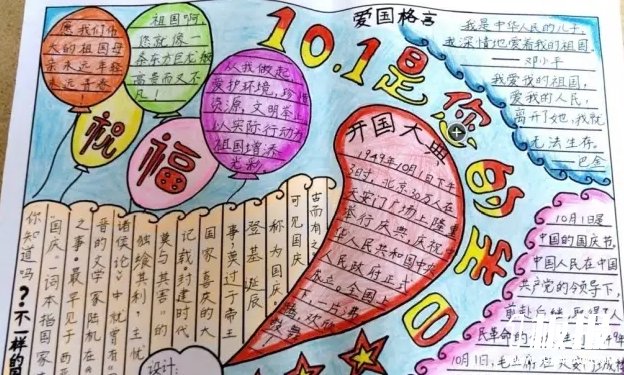 愿我们伟
大的祖国母
亲永远年轻
永远青春
!
祖国啊
您就像一
条东方巨龙般
高贵而又不
凡!
从我做起
爱护环境,珍惜
资源,文明举止
以实际行动为
祖国增添
光彩。
祝
福
10.1是您的生日
爱国格言
我是中华人民的儿子,
我深情地爱着我的祖国。
——邓小平
我爱我的祖国,
爱我的人民,
离开了她,我就
无法生存。
——巴金
开国大典
1949年10月1日下午
3时,北京30万人在
天安门广场上隆重
举行庆典,庆祝
华人民共和国中央
人民政府正式
成立。全国上
下一片沸
腾,欢欣
鼓舞!
10月1日是
中国的国庆节。
中国人民在中国
共产党的领导下,
前赴后继,取得了人
民革命的
10月1日,毛主席在天安门城楼
古而有之
可见国庆
称为国庆。
登基、诞辰
事,莫过于帝王
国家喜庆的大
记载。封建时代
莫与其害”的
独飨其利,主忧
诸侯论》中就曾有“
晋的文学家陆机在《
之事,最早见于西
“国庆”一词本指国家
你知道吗?
不一样的国
设计: